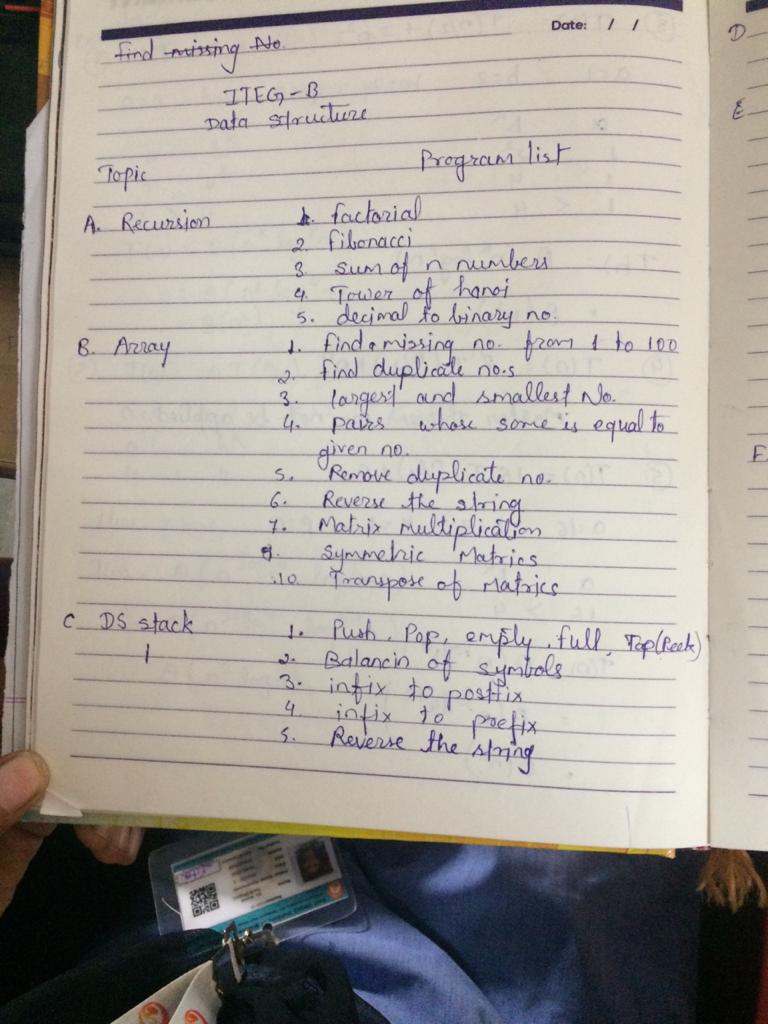 Date: / /
find missing No.
ITEG-B
Data structure
Topic Program list
A. Recursion 1. factorial
2. fibonacci
3. sum of n numbers
4. Tower of hanoi
5. decimal to binary no.
B. Array 1. find missing no. from 1 to 100
2. find duplicate no.s
3. largest and smallest No.
4. pairs whose some is equal to
given no.
5. Remove duplicate no.
6. Reverse the string
7. Matrix multiplication
9. Symmetric Matrics
10. Transpose of Matrics
C DS stack 1. Push, Pop, empty, full, Top(Peek)
1 2. Balancin of symbols
3. infix to postfix
4. infix to prefix
5. Reverse the string
D
E
F